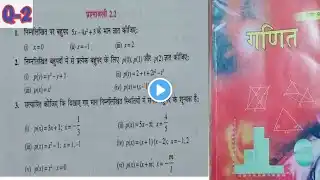 Q-2
प्रश्नावली 2.2
1. निम्नलिखित पर बहुपद 5x – 4x² + 3 के मान ज्ञात कीजिए:
(i) x = 0 (ii) x = –1 (iii) x = 2
2. निम्नलिखित बहुपदों में से प्रत्येक बहुपद के लिए p(0), p(1) और p(2) ज्ञात कीजिए:
(i) p(y) = y² – y + 1 (ii) p(t) = 2 + t + 2t² – t³
(iii) p(x) = x³ (iv) p(x) = (x – 1)(x + 1)
3. सत्यापित कीजिए कि दिखाए गए मान निम्नलिखित स्थितियों में संगत बहुपद के शून्यक हैं:
(i) p(x) = 3x + 1; x = –1/3 (ii) p(x) = 5x – π; x = 4/5
(iii) p(x) = x² – 1; x = 1, –1 (iv) p(x) = (x + 1)(x – 2); x = –1, 2
(v) p(x) = x²; x = 0 (vi) p(x) = lx + m; x = –m/l
गणित